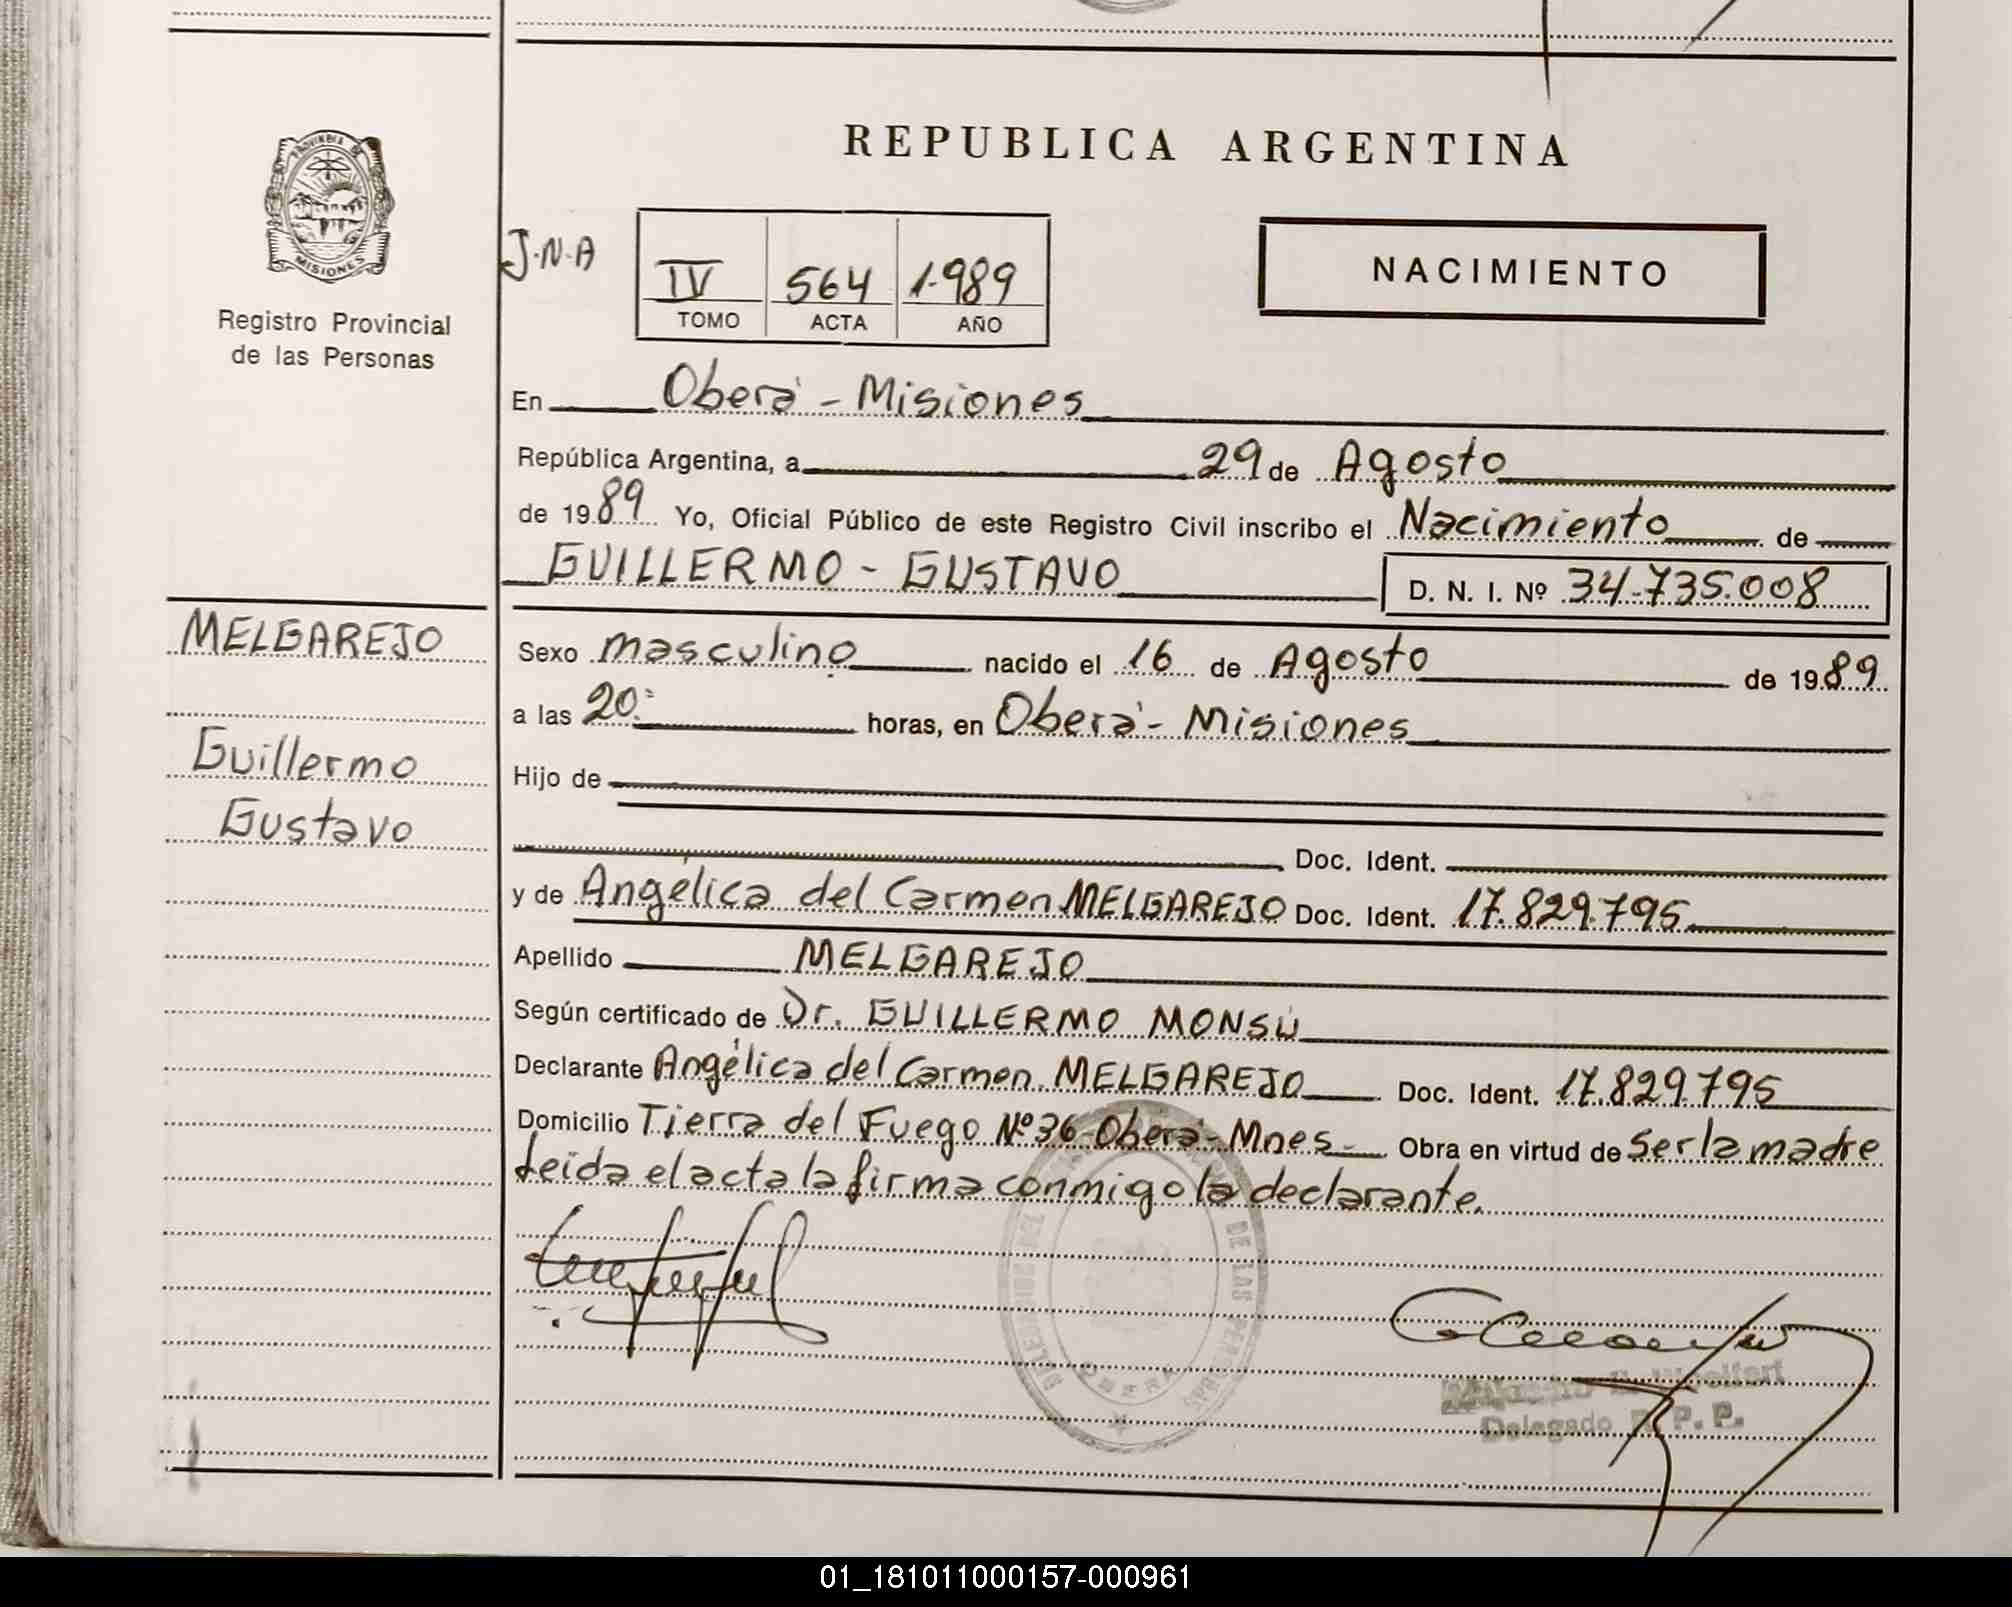 PROVINCIA DE
MISIONES
Registro Provincial
de las Personas
REPUBLICA ARGENTINA
J.N.A
IV 564 1.989
TOMO ACTA AÑO
NACIMIENTO
En Oberá - Misiones
República Argentina, a 29 de Agosto
de 1989 Yo, Oficial Público de este Registro Civil inscribo el Nacimiento de
GUILLERMO - GUSTAVO D. N. I. Nº 34.735.008
MELGAREJO
Guillermo
Gustavo
Sexo masculino nacido el 16 de Agosto de 1989
a las 20: horas, en Oberá - Misiones
Hijo de
Doc. Ident.
y de Angélica del Carmen MELGAREJO Doc. Ident. 17.829.795
Apellido MELGAREJO
Según certificado de Dr. GUILLERMO MONSU
Declarante Angélica del Carmen MELGAREJO Doc. Ident. 17.829.795
Domicilio Tierra del Fuego Nº 36 - Oberá - Mnes - Obra en virtud de ser la madre
Leida el acta la firma conmigo la declarante.
DE LAS PERSONAS
OBERA
Delegado R. P. P.
01_181011000157-000961